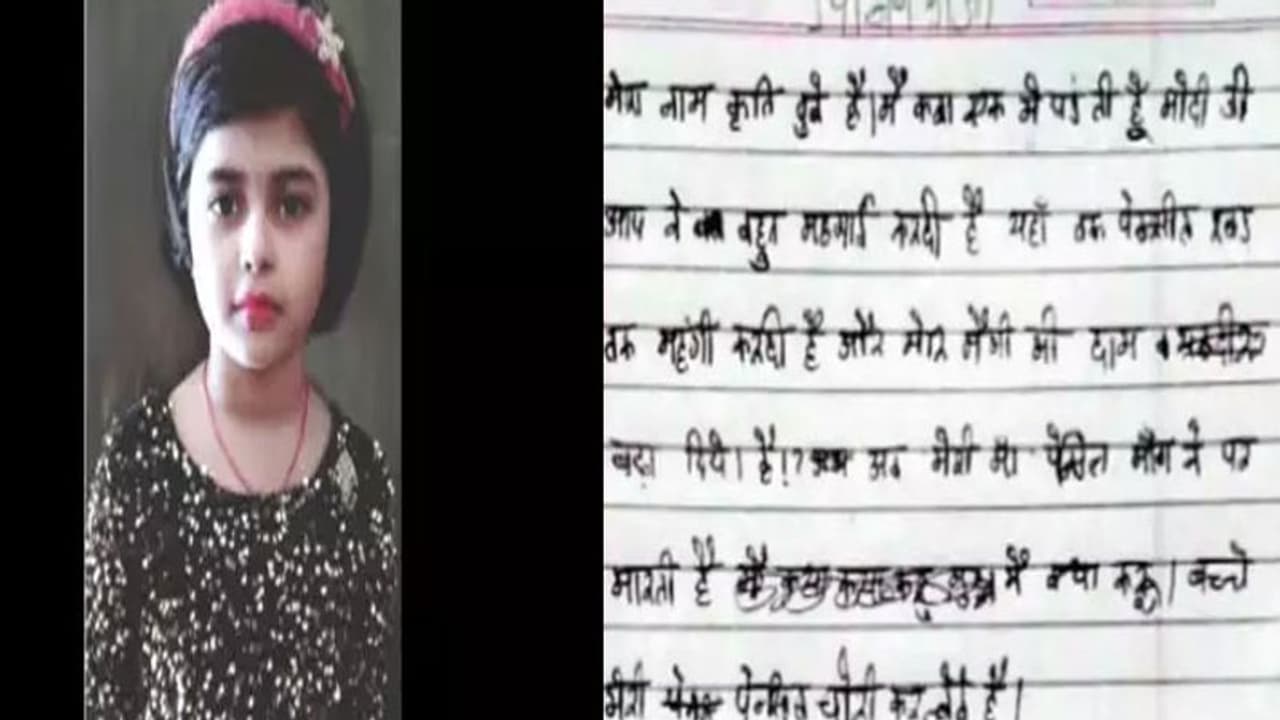 मेरा नाम कृति दुबे है। मैं कक्षा एक मे पढंती हूँ मोदी जी
आप ने बहुत महगाई करदी है यहाँ तक पेन्सील रबड
तक महंगी करदी है और मेरि मैगी की दाम
बढ़ा दिये। है।? अब मेरी माँ पेन्सिल माँग ने पर
मारती है मैं क्या करू। बच्चे
मेरी पेनसिल चोरी कर लेते है।